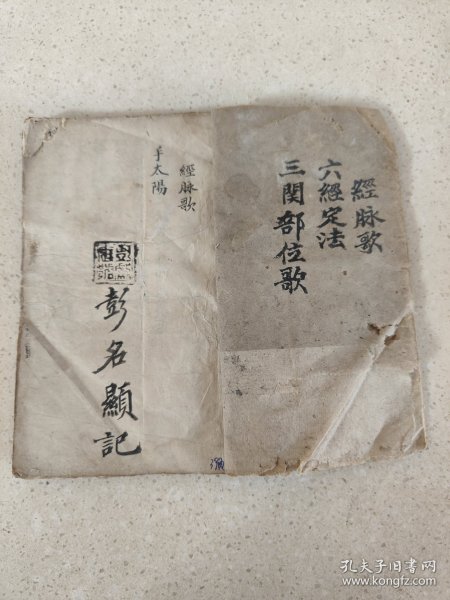 經脉歌
六經定法
三関部位歌
經脉歌
手太陽
彭名顯記
孔夫子旧书网
www.kongfz.com